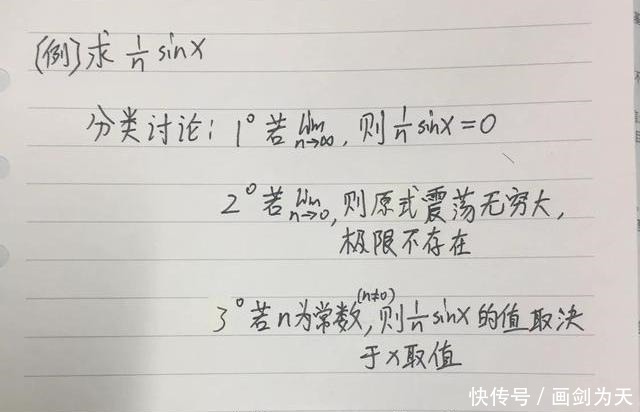 [例]求 1/n sinx
分类讨论：1° 若 lim n→∞，则 1/n sinx=0
2° 若 lim n→0，则原式震荡无穷大，
极限不存在
3° 若n为常数(n≠0)，则 1/n sinx 的值取决
于x取值
快传号／画剑为天